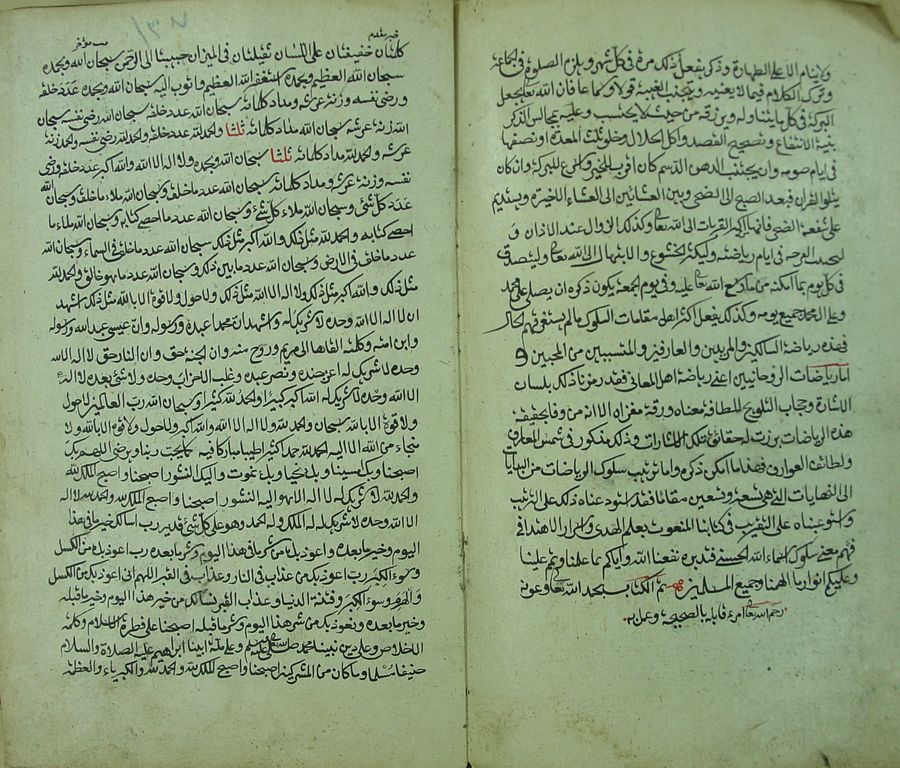 ولا ينام الا على الطهارة وذكر يفعل ذلك مرة في كل شهر ويلزم الصلوة في الجماعة
وترك الكلام فيما لا يعنيه ويتجنب الغيبة قولا وسماعا فان الله تعالى يجعل
البركة في كل ما يتناوله ويرزقه من حيث لا يحتسب وعليه بمجالس الذكر
بنية الانتفاع وتصحيح القصد واكل الحلال وخلو تلك المعدة او نصفها
في ايام صومه وان يجتنب الدهن الدسم كان اقرب الى الخير واسرع للبركة وان كان
يتلوا القرآن فبعد الصبح الى الضحى وبين العشائين الى العشاء الاخيرة ويستديم
على شفعة الضحى فانها اكبر القربات الى الله تعالى وكذلك الزوال عند الاذان و
في ايام رياضته وليكثر الخشوع والابتهال الى الله تعالى وليتصدق
في كل يوم بما امكنه مما وسع الله تعالى عليه وفي يوم الجمعة يكون ذكره ان يصلي على محمد
وعلى آل محمد جميع يومه وكذلك يفعل اكثر اهل مقامات السلوك ما لم يستغرقهم الحال
فهذه رياضة السالكين والمريدين والعارفين والمتسببين من المحبين و
اما رياضات الروحانيين اعني رياضة اهل المعاني فقد رمزنا ذلك بلسان
الاشارة وحجاب التلويح للطافة معناه ورقة مغزاه الا انه من وفا بحقيقة
هذه الرياضات برزت له حقائق تلك الاشارات وذلك مذكور في شمس المعارف
ولطائف العوارف فهذا ما امكن ذكره واما ترتيب سلوك الرياضات من البدايات
الى النهايات التي هي تسعة وتسعين مقاما فقد اودعناه ذلك على الترتيب
واستوعبناه على التقريب في كتابنا المنعوت بعلم الهدى واسرار الاهتدا في
فهم معنى سلوك اسماء الله الحسنى فتدبره نفعنا الله واياكم بما علمنا وتمم علينا
وعليكم انوار ما الهمنا وجميع المسلمين تم الكتاب بحمد الله تعالى وعونه
رحم الله تعالى امرء قابله بالصحيحة وعمل به
خبر مقدم
مبتدا مؤخر
كلمتان خفيفتان على اللسان ثقيلتان في الميزان حبيبتا الى الرحمن سبحان الله وبحمده
سبحان الله العظيم وبحمده استغفر الله العظيم واتوب اليه سبحان الله وبحمده عدد خلقه
ورضى نفسه وزنة عرشه ومداد كلماته سبحان الله عدد خلقه سبحان الله رضى نفسه سبحان
الله زنة عرشه سبحان الله مداد كلماته ثلثا والحمد لله عدد خلقه والحمد لله رضى نفسه والحمد لله زنة
عرشه والحمد لله مداد كلماته ثلثا سبحان الله وبحمده ولا اله الا الله والله اكبر عدد خلقه ورضى
نفسه وزنة عرشه ومداد كلماته سبحان الله عدد ما خلق وسبحان الله ملاء ما خلق وسبحان الله
عدد كل شئ وسبحان الله ملاء كل شئ وسبحان الله عدد ما احصى كتابه وسبحان الله ملاء ما
احصى كتابه والحمد لله مثل ذلك والله اكبر مثل ذلك سبحان الله عدد ما خلق في السماء وسبحان الله
عدد ما خلق في الارض وسبحان الله عدد ما بين ذلك وسبحان الله عدد ما هو خالق والحمد لله
مثل ذلك والله اكبر مثل ذلك ولا اله الا الله مثل ذلك ولا حول ولا قوة الا بالله مثل ذلك اشهد
ان لا اله الا الله وحده لا شريك له واشهد ان محمدا عبده ورسوله وان عيسى عبد الله ورسوله
وابن امته وكلمته القاها الى مريم وروح منه وان الجنة حق وان النار حق لا اله الا الله
وحده لا شريك له اعز جنده ونصر عبده وغلب الاحزاب وحده ولا شئ بعده لا اله
الا الله وحده لا شريك له الله اكبر كبيرا والحمد لله كثيرا وسبحان الله رب العالمين لا حول
ولا قوة الا بالله سبحان والحمد لله ولا اله الا الله والله اكبر ولا حول ولا قوة الا بالله ولا
منجاء من الله الا اليه الحمد لله حمدا كثيرا طيبا مباركا فيه كما يحب ربنا ويرضى اللهم بك
اصبحنا وبك امسينا وبك نحيا وبك نموت واليك النشور اصبحنا واصبح الملك لله
والحمد لله لا شريك له لا اله الا هو واليه النشور اصبحنا واصبح الملك لله والحمد لله لا اله
الا الله وحده لا شريك له له الملك وله الحمد وهو على كل شئ قدير رب اسالك خير ما في هذا
اليوم وخير ما بعده واعوذ بك من شر ما في هذا اليوم وشر ما بعده رب اعوذ بك من الكسل
وسوء الكبر رب اعوذ بك من عذاب في النار وعذاب في القبر اللهم اني اعوذ بك من الكسل
والهرم وسوء الكبر وفتنة الدنيا وعذاب القبر نسالك من خير هذا اليوم وخير ما قبله
وخير ما بعده ونعوذ بك من شر هذا اليوم وشر ما قبله اصبحنا على فطرة الاسلام وكلمة
الاخلاص وعلى دين نبينا محمد صلى الله عليه وسلم وعلى ملة ابينا ابراهيم عليه الصلاة والسلام
حنيفا مسلما وما كان من المشركين اصبحنا واصبح الملك لله والحمد لله والكبرياء والعظمة